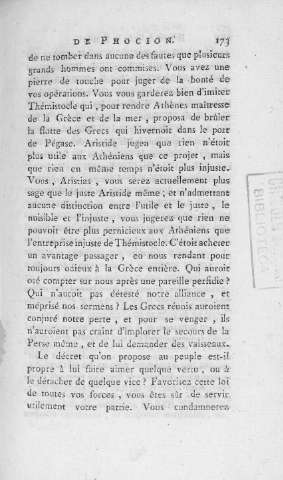 DE PHOCION. 173
de ne tomber dans aucune des fautes que plusieurs
grands hommes ont commises. Vous avez une
pierre de touche pour juger de la bonté de
vos opérations. Vous vous garderez bien d'imiter
Thémistocle qui, pour rendre Athènes maîtresse
de la Grèce et de la mer, proposa de brûler
la flotte des Grecs qui hivernoit dans le port
de Pégase. Aristide jugea que rien n'étoit
plus utile aux Athéniens que ce projet, mais
que rien en même temps n'étoit plus injuste.
Vous, Aristias, vous serez actuellement plus
sage que le juste Aristide même; et n'admettant
aucune distinction entre l'utile et le juste, le
nuisible et l'injuste, vous jugerez que rien ne
pouvoit être plus pernicieux aux Athéniens que
l'entreprise injuste de Thémistocle. C'étoit acheter
un avantage passager, en nous rendant pour
toujours odieux à la Grèce entière. Qui auroit
osé compter sur nous après une pareille perfidie?
Qui n'auroit pas détesté notre alliance, et
méprisé nos sermens? Les Grecs réunis auroient
conjuré notre perte, et pour se venger, ils
n'auroient pas craint d'implorer le secours de la
Perse même, et de lui demander des vaisseaux.
Le décret qu'on propose au peuple est-il
propre à lui faire aimer quelque vertu, ou à
le détacher de quelque vice? Favorisez cette loi
de toutes vos forces, vous êtes sûr de servir
utilement votre patrie. Vous condamnerez